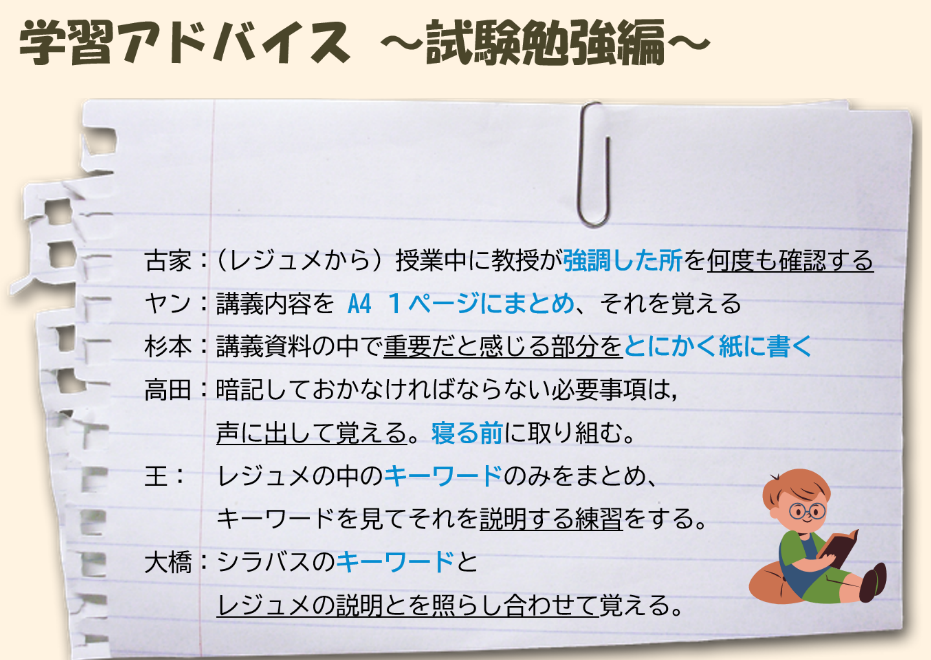 学習アドバイス ~試験勉強編~
古家：（レジュメから）授業中に教授が強調した所を何度も確認する
ヤン：講義内容を A4 １ページにまとめ、それを覚える
杉本：講義資料の中で重要だと感じる部分をとにかく紙に書く
高田：暗記しておかなければならない必要事項は，
声に出して覚える。寝る前に取り組む。
王：　レジュメの中のキーワードのみをまとめ、
キーワードを見てそれを説明する練習をする。
大橋：シラバスのキーワードと
レジュメの説明とを照らし合わせて覚える。